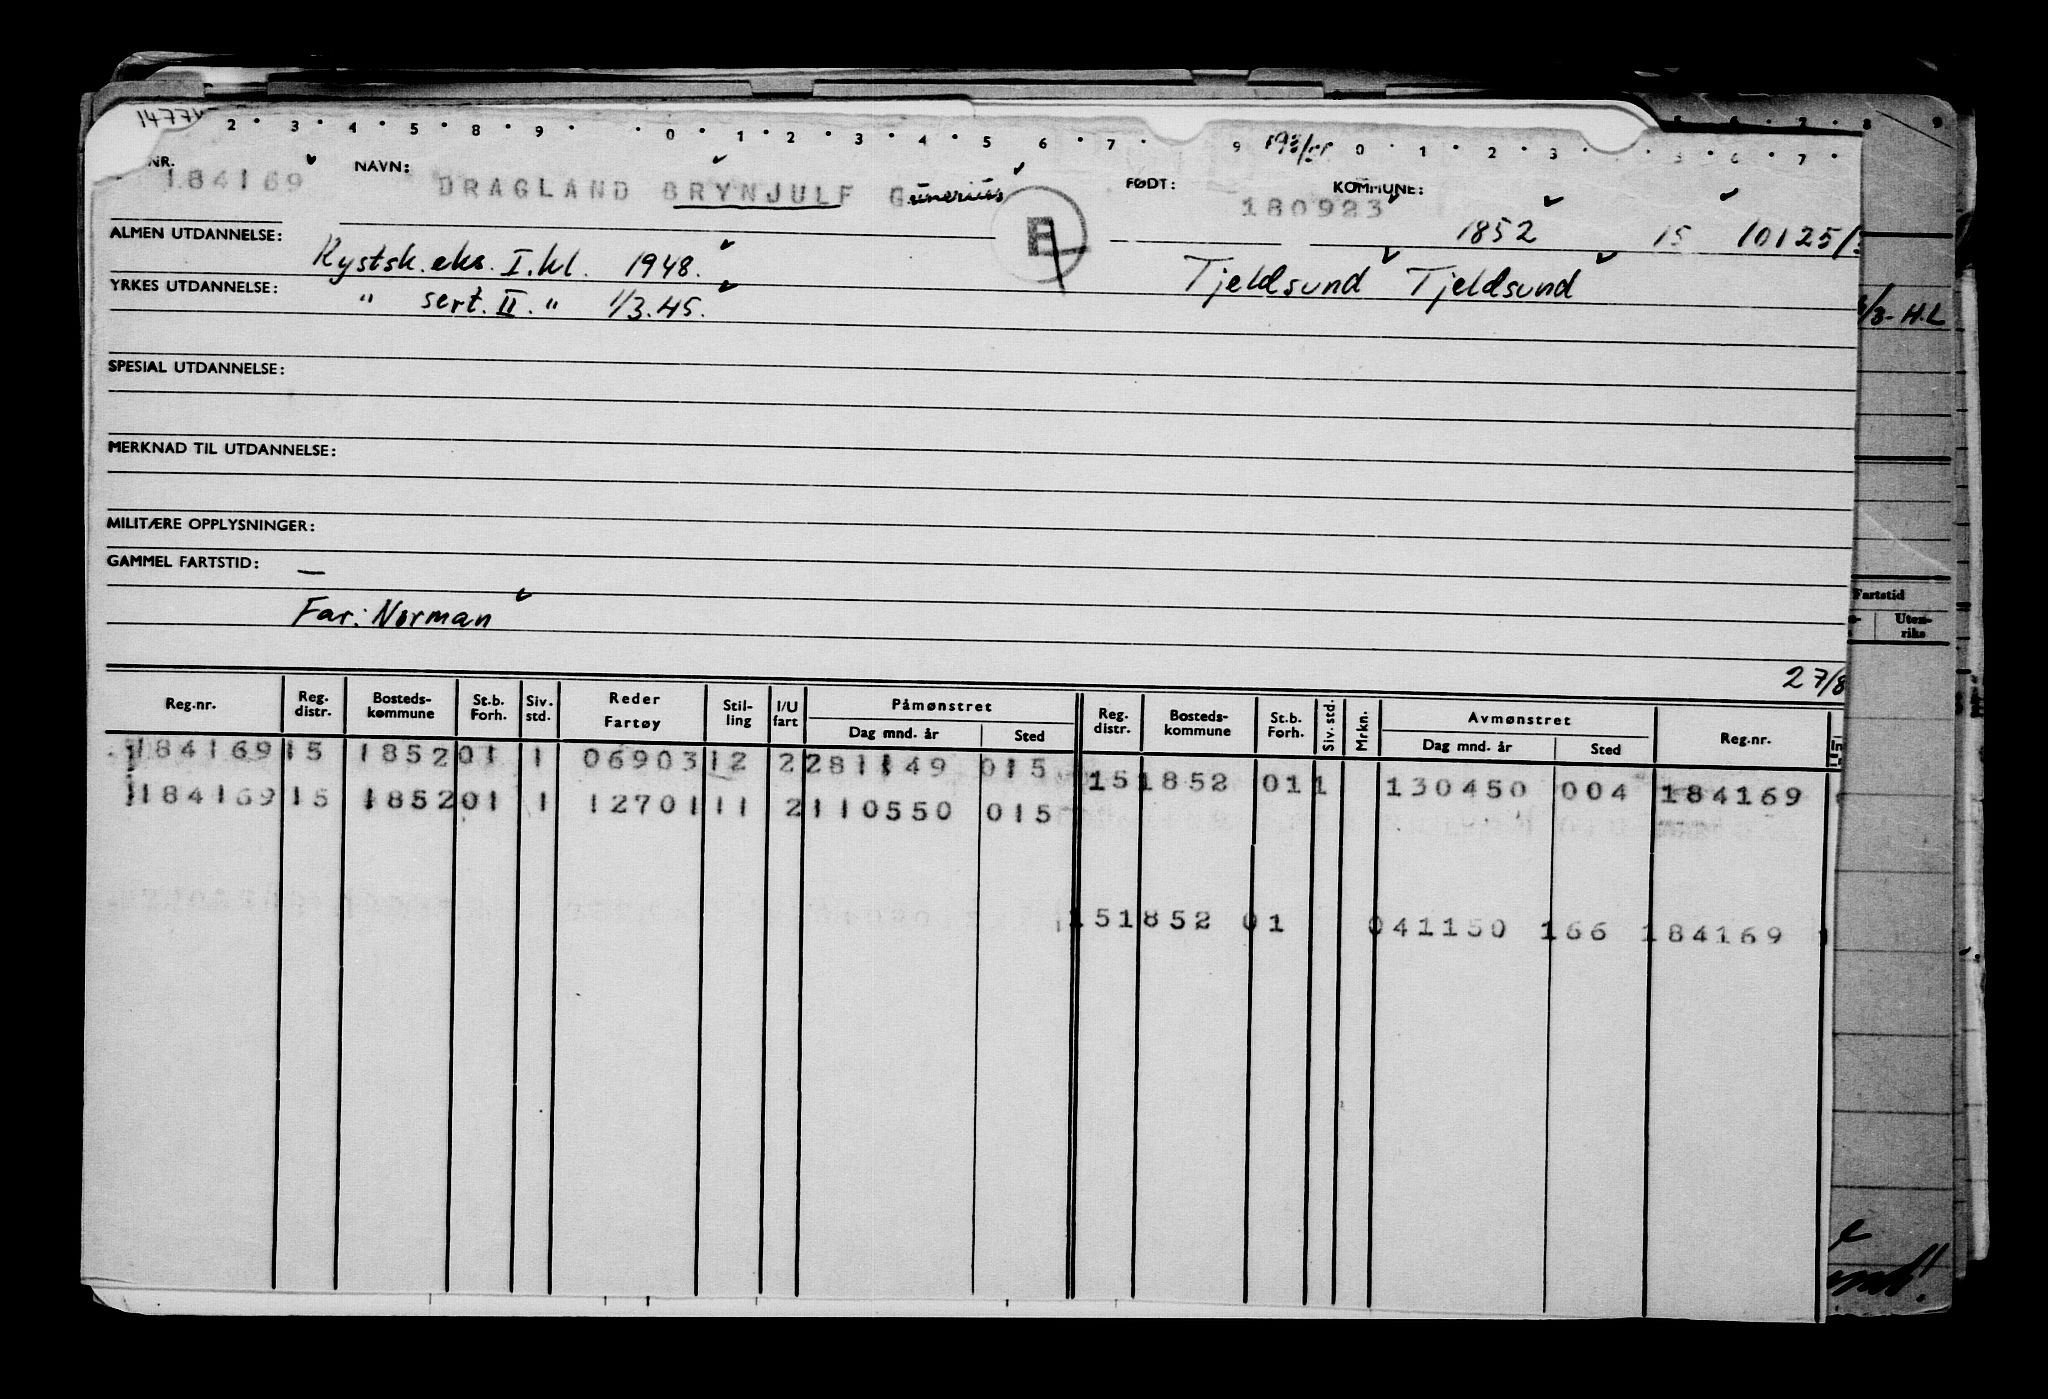 2 3 4 5 8 9 0 1 2 3 4 5 6 7 9 0 1 2 3 5 6 7 8 9
NR. 184169 NAVN: DRAGLAND BRYNJULF Gunerius FØDT: 180923 KOMMUNE: 1852 15 10125/
ALMEN UTDANNELSE: Kystsk. eks. I. kl. 1948. E Tjeldsund Tjeldsund
YRKES UTDANNELSE: " sert. II. " 1/3.45.
/3- H.L
SPESIAL UTDANNELSE:
MERKNAD TIL UTDANNELSE:
MILITÆRE OPPLYSNINGER:
GAMMEL FARTSTID: —
Fartstid
Far: Norman
Uten-
riks
27/8
Reg.nr. Reg. distr. Bosteds- kommune St.b. Forh. Siv. std. Reder Fartøy Stil- ling I/U fart Påmønstret Dag mnd. år Sted Reg. distr. Bosteds- kommune St.b. Forh. Siv. std. Mrkn. Avmønstret Dag mnd. år Sted Reg.nr. In
184169 15 1852 01 1 06903 12 2 281149 015 15 1852 01 1 130450 004 184169
184169 15 1852 01 1 12701 11 2 110550 015
15 1852 01 041150 166 184169